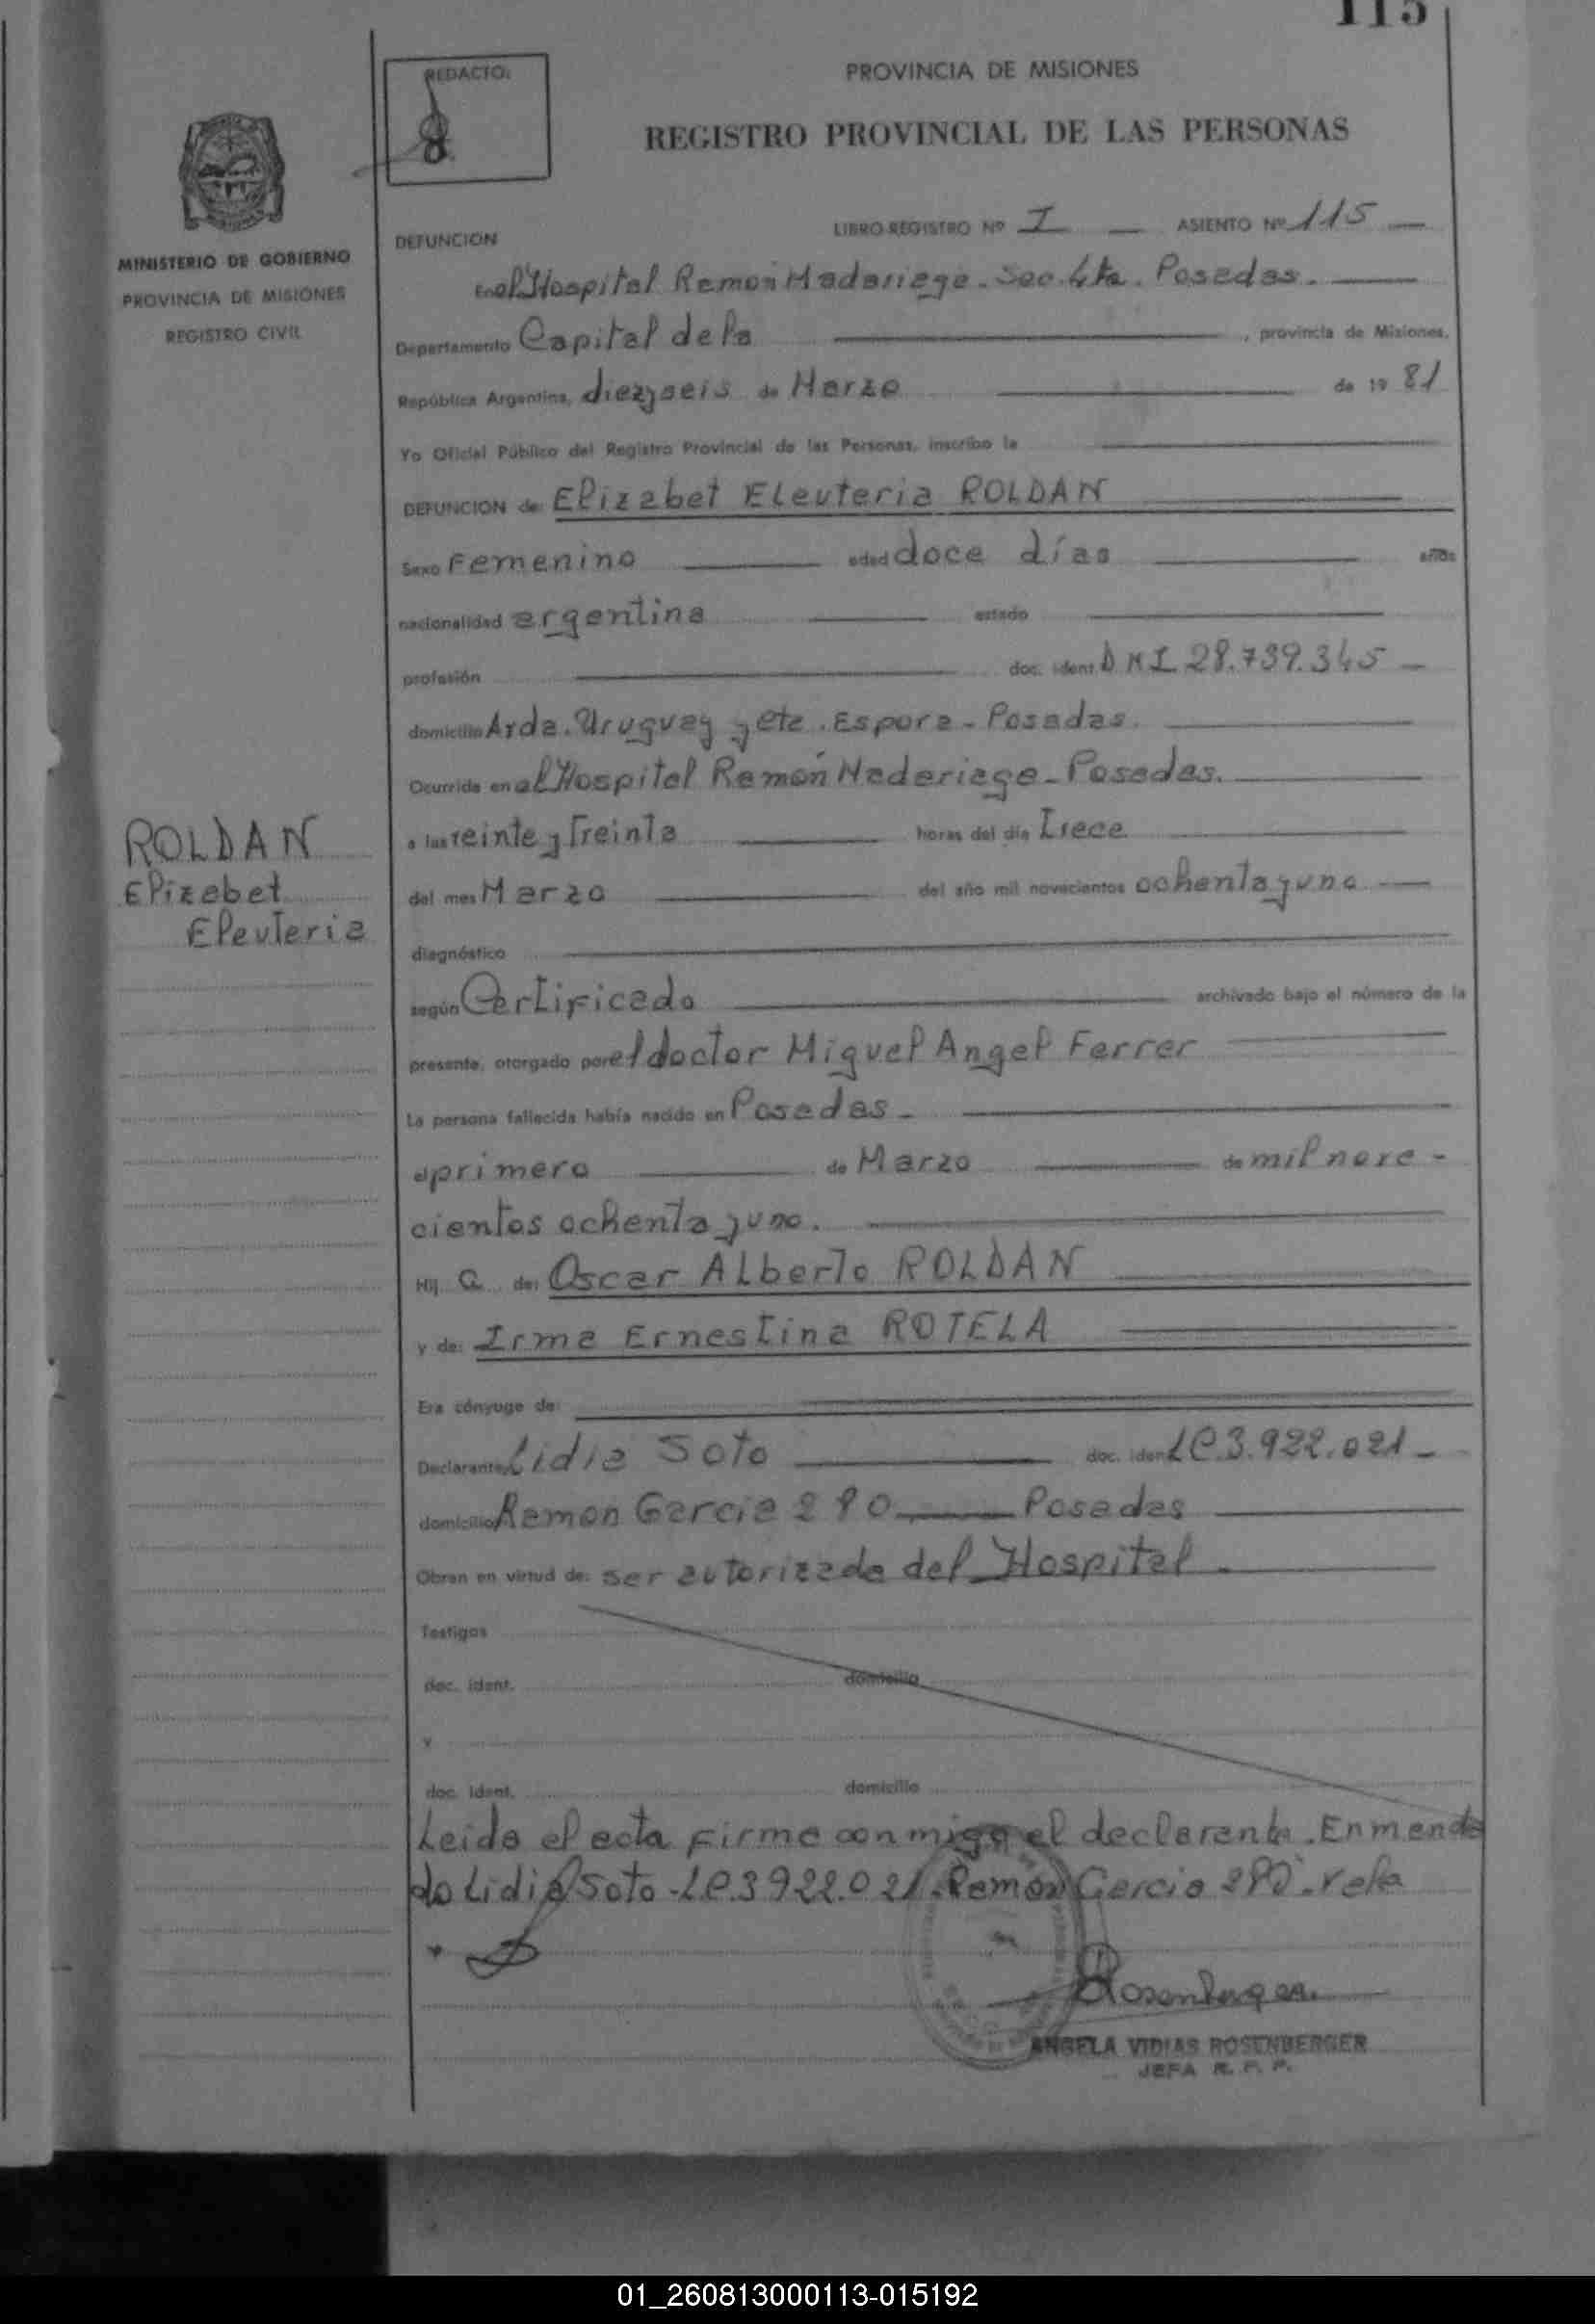 115
REDACTO:
PROVINCIA DE MISIONES
REGISTRO PROVINCIAL DE LAS PERSONAS
MINISTERIO DE GOBIERNO
PROVINCIA DE MISIONES
REGISTRO CIVIL
DEFUNCION LIBRO REGISTRO Nº I ASIENTO Nº 115
En el Hospital Ramón Madariaga. Sec. 4ta. Posadas.
Departamento Capital de la , provincia de Misiones,
República Argentina, diezyseis de Marzo de 19 81
Yo Oficial Público del Registro Provincial de las Personas, inscribo la
DEFUNCION de: Elizabet Eleuteria ROLDAN
Sexo Femenino edad doce días años
nacionalidad argentina estado
profesión doc. ident. DNI 28.739.345
domicilio Avda. Uruguay y cte. Espora - Posadas.
Ocurrida en el Hospital Ramón Madariaga - Posadas.
a las veinte y treinta horas del día trece
del mes Marzo del año mil novecientos ochenta y uno
diagnóstico
según Certificado archivado bajo el número de la
presente, otorgado por el doctor Miguel Angel Ferrer
La persona fallecida había nacido en Posadas -
el primero de Marzo de mil nove-
cientos ochenta y uno.
Hij a de: Oscar Alberto ROLDAN
y de: Irma Ernestina ROTELA
Era cónyuge de:
Declarante Lidia Soto doc. ident. LC 3.922.021 -
domicilio Ramon Garcia 280 Posadas
Obran en virtud de: ser autorizada del Hospital.
Testigos
doc. ident. domicilio
y
doc. ident. domicilio
Leida el acta firma conmigo el declarante. Enmenda
do Lidia Soto - LC.3922.021. Ramón Garcia 280. Vale
Rosenberger
ANGELA VIDIAS ROSENBERGER
JEFA R. P. P.
ROLDAN
Elizabet
Eleuteria
01_260813000113-015192